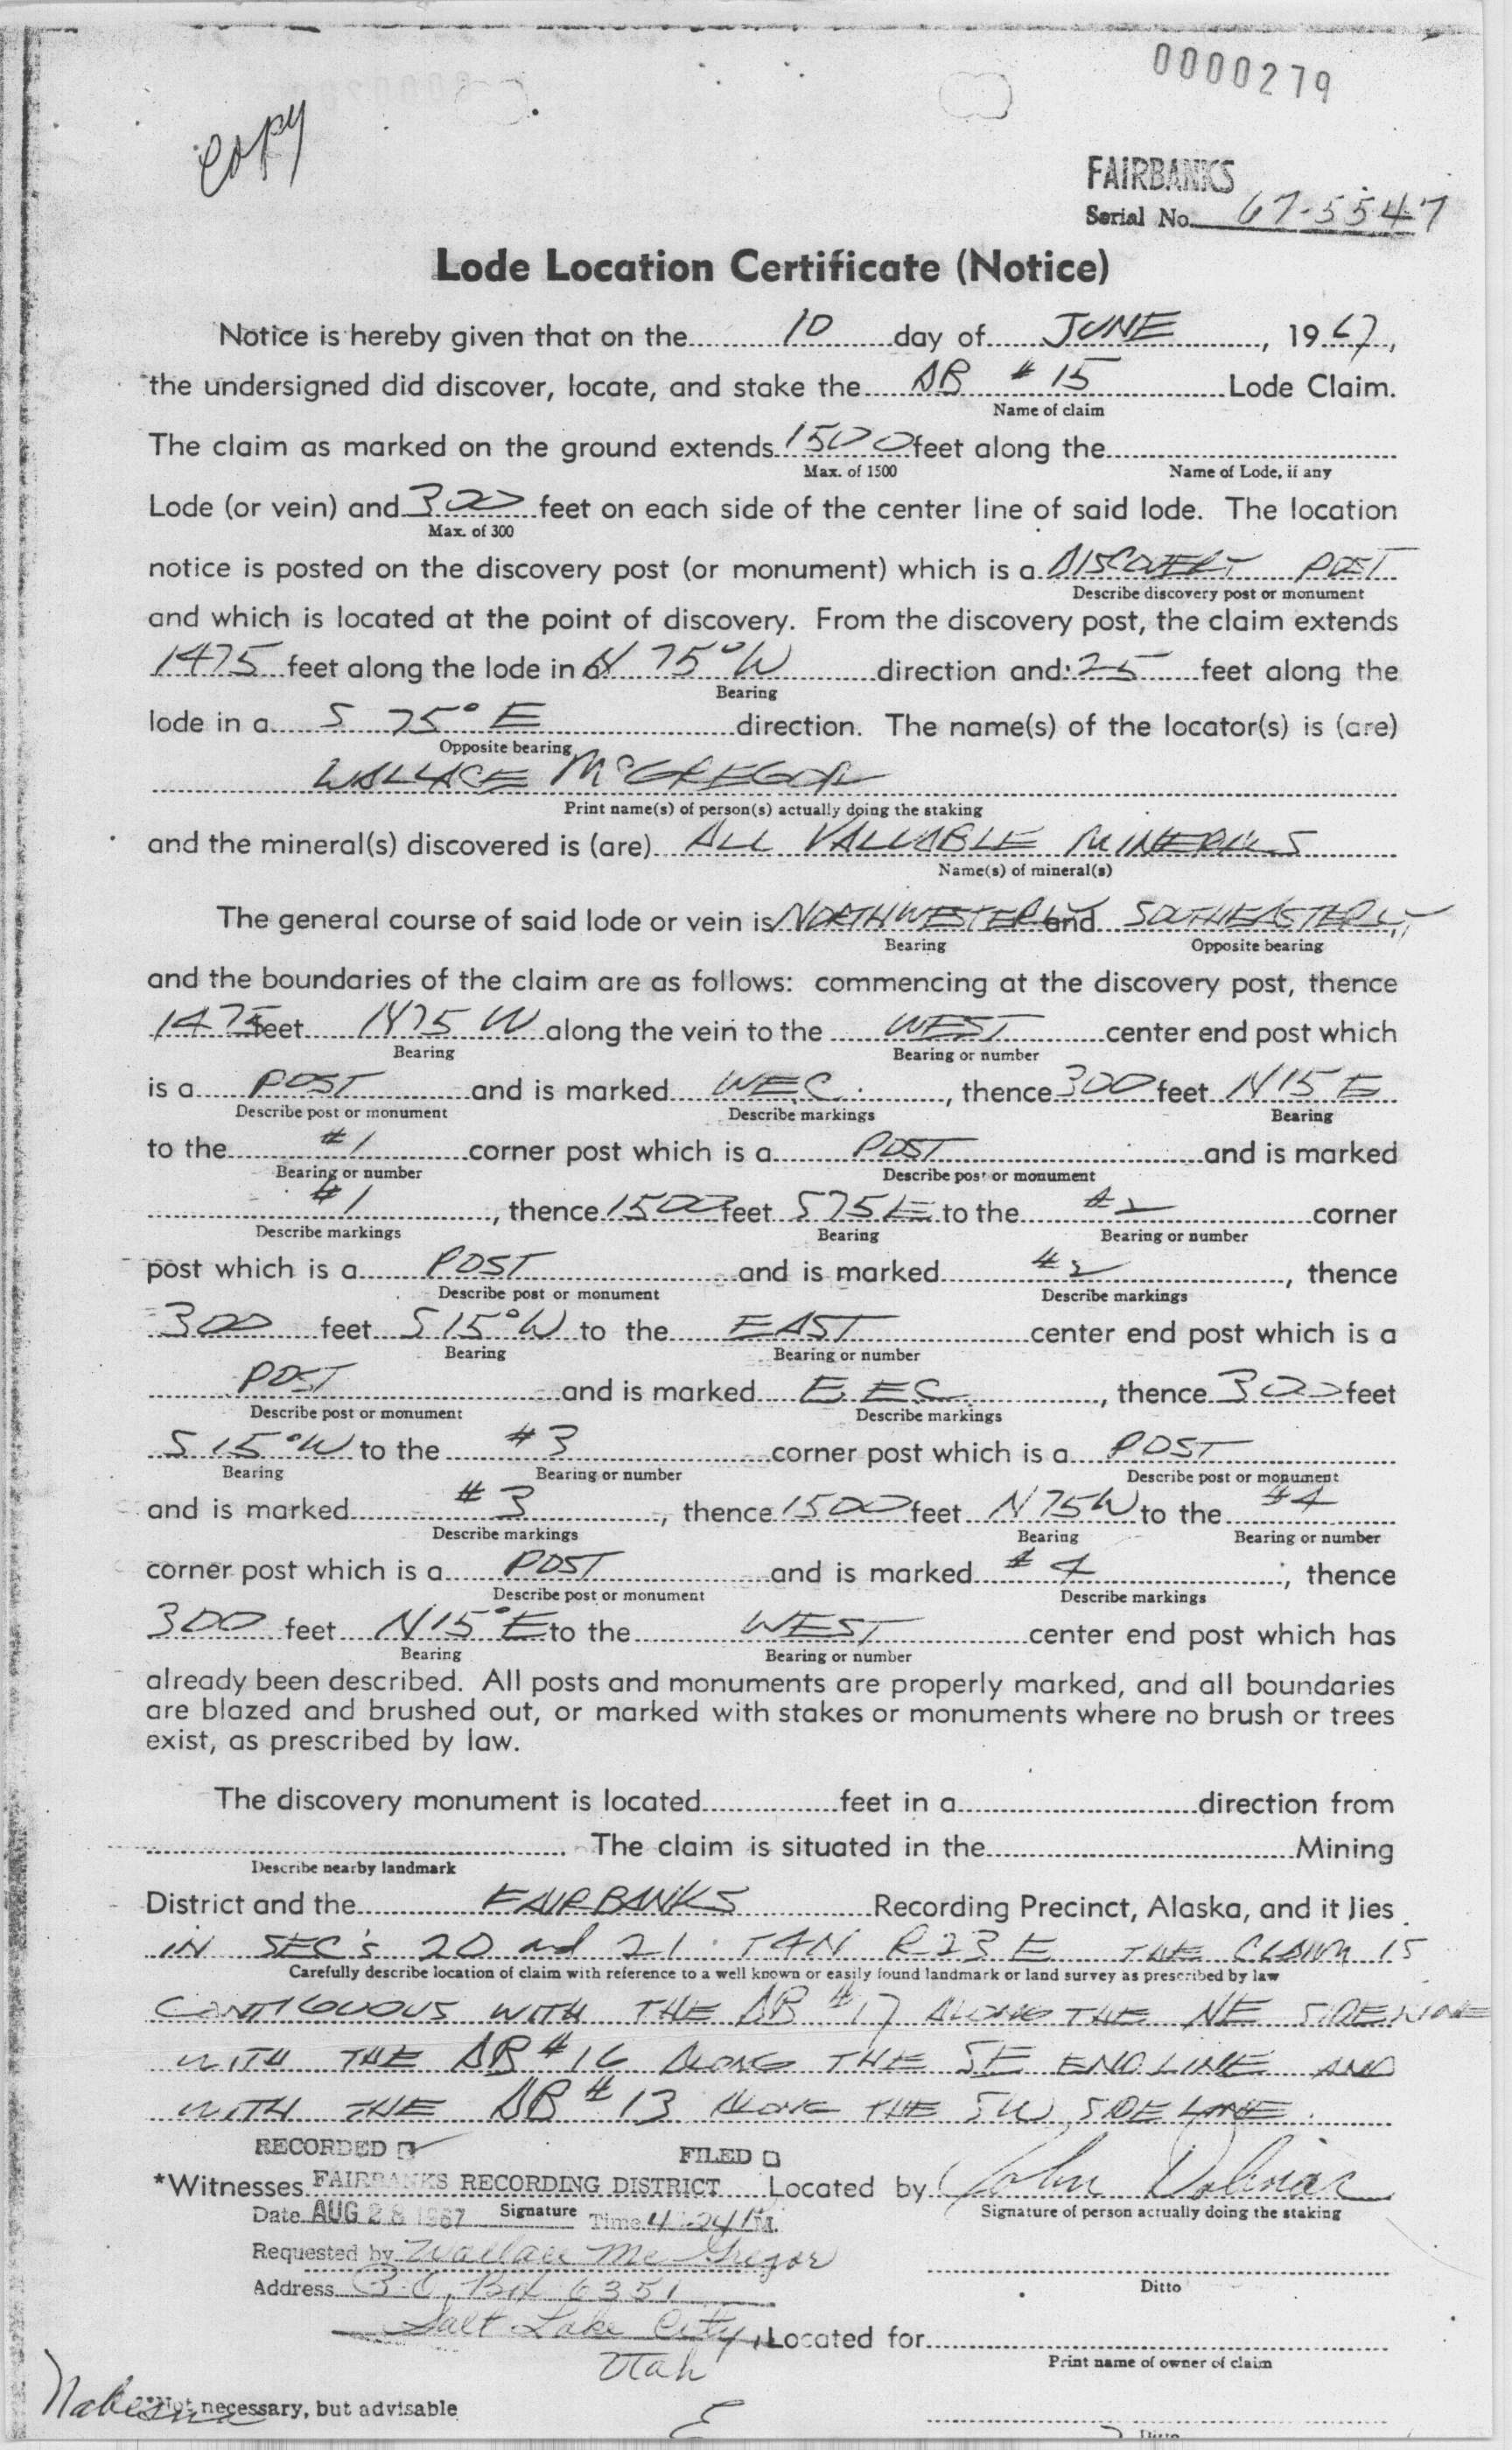 0000279
copy
FAIRBANKS
Serial No. 67-5547
Lode Location Certificate (Notice)
Notice is hereby given that on the 10 day of JUNE, 1967,
the undersigned did discover, locate, and stake the DB #15 Lode Claim.
Name of claim
The claim as marked on the ground extends 1500 feet along the
Max. of 1500 Name of Lode, if any
Lode (or vein) and 300 feet on each side of the center line of said lode. The location
Max. of 300
notice is posted on the discovery post (or monument) which is a DISCOVERY POST
Describe discovery post or monument
and which is located at the point of discovery. From the discovery post, the claim extends
1475 feet along the lode in a N 75° W direction and 25 feet along the
Bearing
lode in a S 75° E direction. The name(s) of the locator(s) is (are)
Opposite bearing
WALLACE McGREGOR
Print name(s) of person(s) actually doing the staking
and the mineral(s) discovered is (are) ALL VALUABLE MINERALS
Name(s) of mineral(s)
The general course of said lode or vein is NORTHWESTERLY and SOUTHEASTERLY
Bearing Opposite bearing
and the boundaries of the claim are as follows: commencing at the discovery post, thence
1475 feet N75 W along the vein to the WEST center end post which
Bearing Bearing or number
is a POST and is marked WEC, thence 300 feet N15 E
Describe post or monument Describe markings Bearing
to the #1 corner post which is a POST and is marked
Bearing or number Describe post or monument
#1, thence 1500 feet S75E to the #2 corner
Describe markings Bearing Bearing or number
post which is a POST and is marked #2, thence
Describe post or monument Describe markings
300 feet S15°W to the EAST center end post which is a
Bearing Bearing or number
POST and is marked E EC, thence 300 feet
Describe post or monument Describe markings
S 15°W to the #3 corner post which is a POST
Bearing Bearing or number Describe post or monument
and is marked #3, thence 1500 feet N75W to the #4
Describe markings Bearing Bearing or number
corner post which is a POST and is marked #4, thence
Describe post or monument Describe markings
300 feet N15°E to the WEST center end post which has
Bearing Bearing or number
already been described. All posts and monuments are properly marked, and all boundaries
are blazed and brushed out, or marked with stakes or monuments where no brush or trees
exist, as prescribed by law.
The discovery monument is located feet in a direction from
The claim is situated in the Mining
Describe nearby landmark
District and the FAIRBANKS Recording Precinct, Alaska, and it lies
IN SEC'S 20 and 21 T4N R23E THE CLAIM IS
Carefully describe location of claim with reference to a well known or easily found landmark or land survey as prescribed by law
CONTIGUOUS WITH THE DB #17 ALONG THE NE SIDELINE
WITH THE DB #16 ALONG THE SE ENDLINE AND
WITH THE DB #13 ALONG THE SW SIDE LINE.
RECORDED FILED
*Witnesses FAIRBANKS RECORDING DISTRICT Located by John
Date AUG 28 1967 Signature Time 4:24 PM. Signature of person actually doing the staking
Requested by Wallace McGregor
Address P.O. Box 6351 Ditto
Salt Lake City, Located for
Utah Print name of owner of claim
Nabesna
*Not necessary, but advisable
Ditto